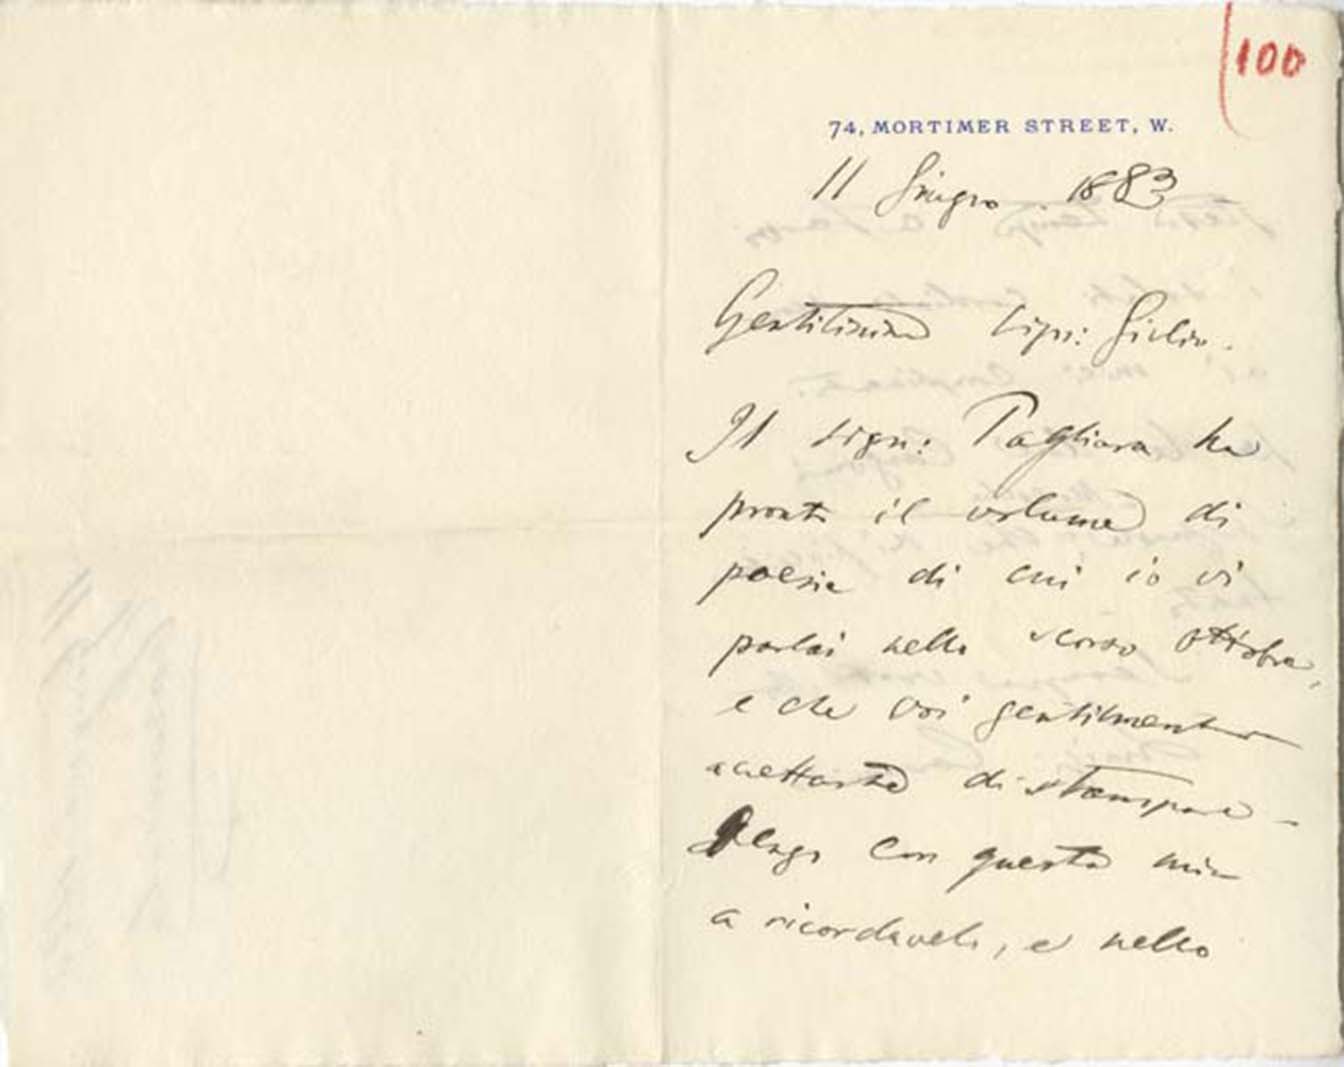 100
74, MORTIMER STREET, W.
11 Giugno 1883
Gentilissimo Sign: Giulio.
Il sign: Pagliara ha
pronto il volume di
poesie di cui io vi
parlai nello scorso ottobre,
e che voi gentilmente
accettaste di stampare -
Vengo con questa mia
a ricordarvelo, e nello